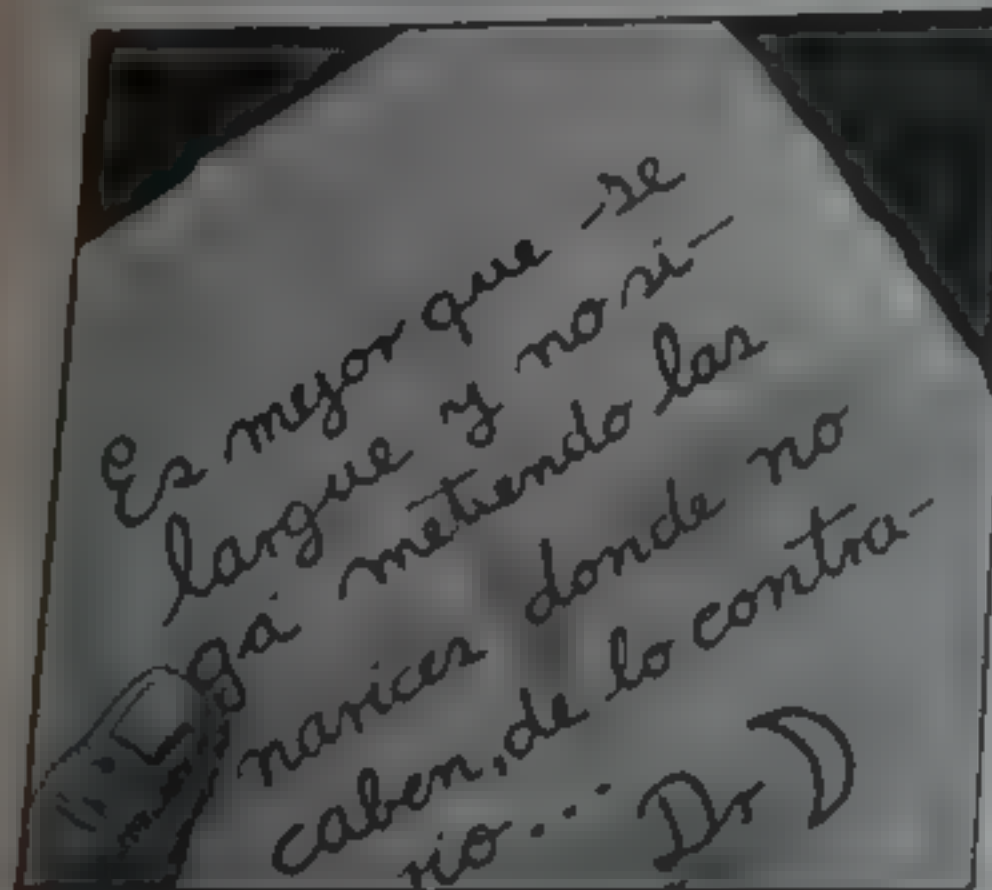 Es mejor que se
largue y no si-
ga metiendo las
narices donde no
caben, de lo contra-
rio... Dr